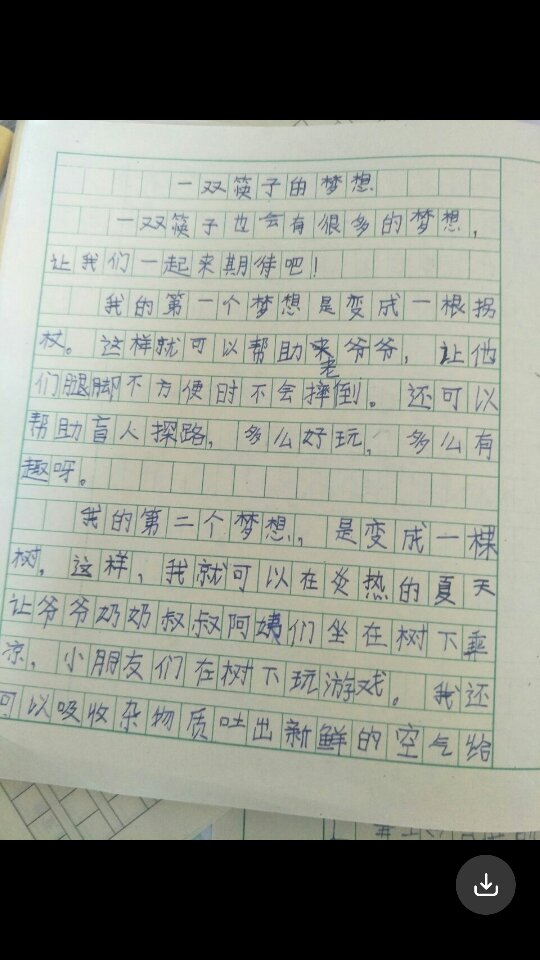 一双筷子的梦想
一双筷子也会有很多的梦想，
让我们一起来期待吧！
我的第一个梦想是变成一根拐
杖。这样就可以帮助老爷爷，让他
们腿脚不方便时不会摔倒。还可以
帮助盲人探路，多么好玩，多么有
趣呀。
我的第二个梦想，是变成一棵
树，这样，我就可以在炎热的夏天
让爷爷奶奶叔叔阿姨们坐在树下乘
凉，小朋友们在树下玩游戏。我还
可以吸收杂物质吐出新鲜的空气给